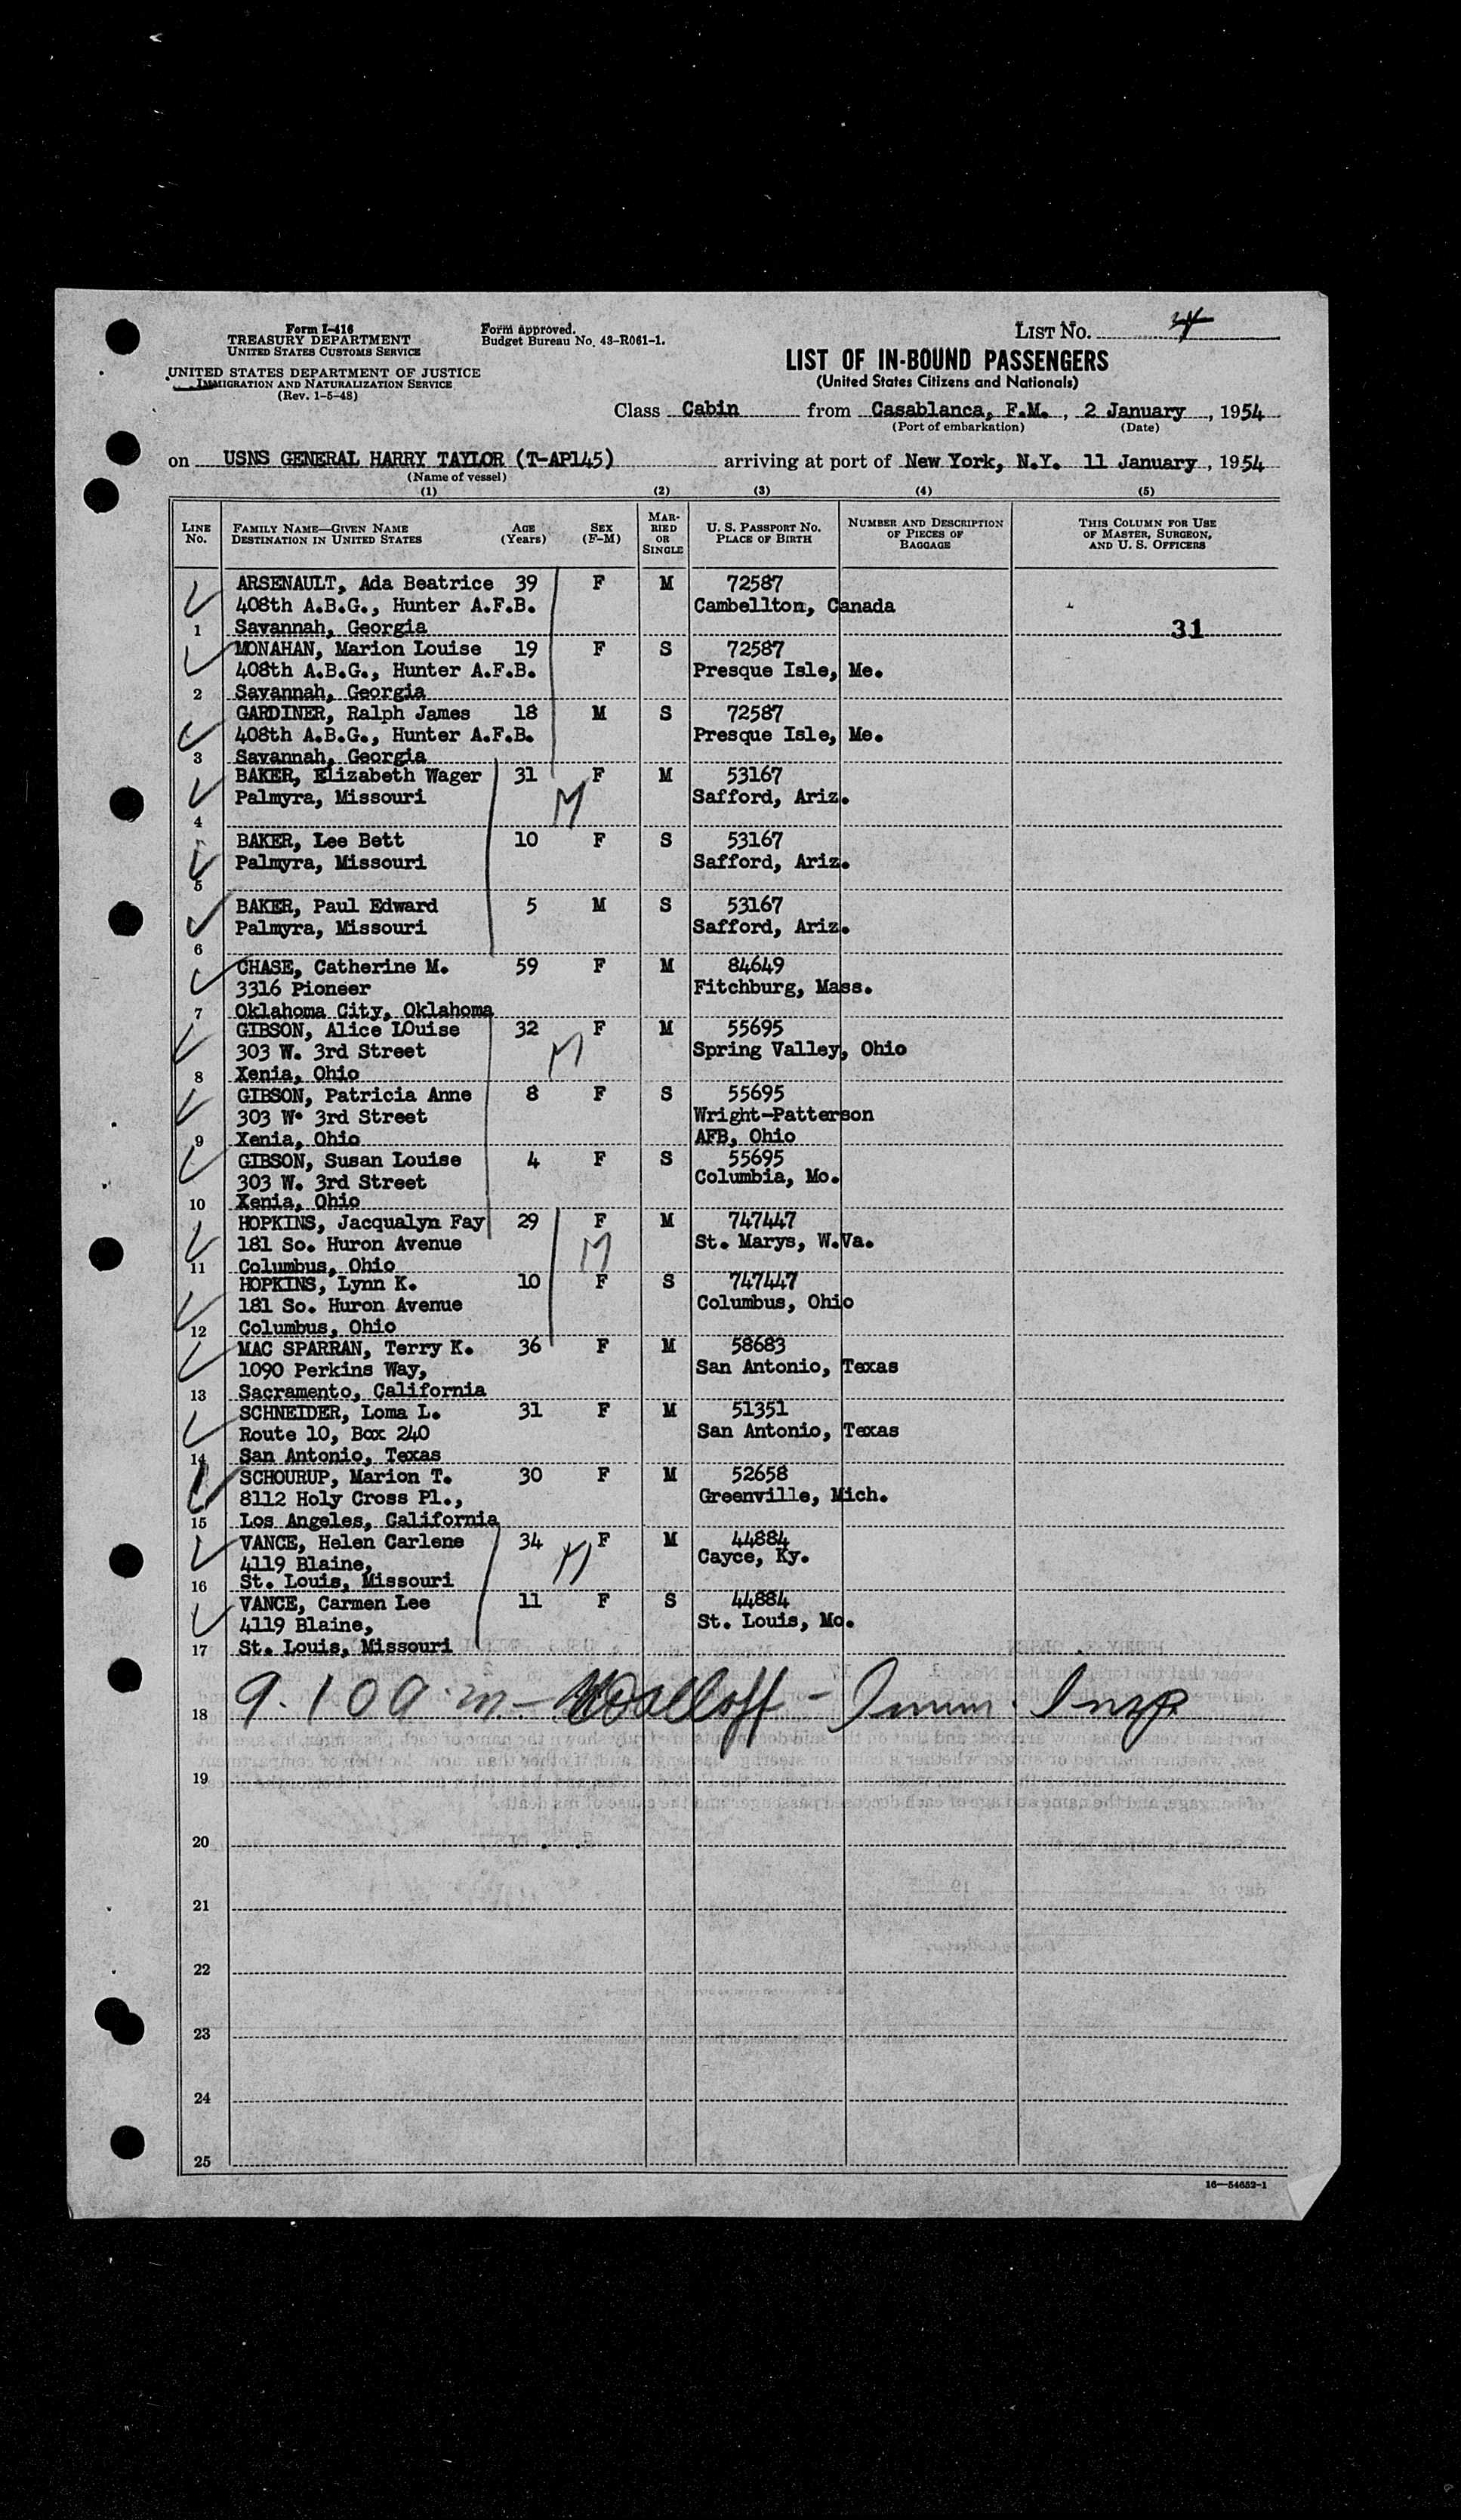 Form I-416
TREASURY DEPARTMENT
UNITED STATES CUSTOMS SERVICE
UNITED STATES DEPARTMENT OF JUSTICE
IMMIGRATION AND NATURALIZATION SERVICE
(Rev. 1-5-48)
Form approved.
Budget Bureau No. 43-R061-1.
LIST NO.
LIST OF IN-BOUND PASSENGERS
(United States Citizens and Nationals)
Class Cabin from Casablanca, F.M., 2 January, 1954
(Port of embarkation) (Date)
on USNS GENERAL HARRY TAYLOR (T-AP145) arriving at port of New York, N.Y. 11 January, 1954
(Name of vessel)
(1) (2) (3) (4) (5)
LINE NO. FAMILY NAME—GIVEN NAME DESTINATION IN UNITED STATES AGE (Years) SEX (F-M) MARRIED OR SINGLE U. S. PASSPORT NO. PLACE OF BIRTH NUMBER AND DESCRIPTION OF PIECES OF BAGGAGE THIS COLUMN FOR USE OF MASTER, SURGEON, AND U. S. OFFICERS
ARSENAULT, Ada Beatrice 39 F M 72587
408th A.B.G., Hunter A.F.B. Cambellton, Canada
1 Savannah, Georgia 31
MONAHAN, Marion Louise 19 F S 72587
408th A.B.G., Hunter A.F.B. Presque Isle, Me.
2 Savannah, Georgia
GARDINER, Ralph James 18 M S 72587
408th A.B.G., Hunter A.F.B. Presque Isle, Me.
3 Savannah, Georgia
BAKER, Elizabeth Wager 31 F M 53167
Palmyra, Missouri M Safford, Ariz.
4
BAKER, Lee Bett 10 F S 53167
Palmyra, Missouri Safford, Ariz.
5
BAKER, Paul Edward 5 M S 53167
Palmyra, Missouri Safford, Ariz.
6
CHASE, Catherine M. 59 F M 84649
3316 Pioneer Fitchburg, Mass.
7 Oklahoma City, Oklahoma
GIBSON, Alice LOuise 32 F M 55695
303 W. 3rd Street M Spring Valley, Ohio
8 Xenia, Ohio
GIBSON, Patricia Anne 8 F S 55695
303 W. 3rd Street Wright-Patterson
9 Xenia, Ohio AFB, Ohio
GIBSON, Susan Louise 4 F S 55695
303 W. 3rd Street Columbia, Mo.
10 Xenia, Ohio
HOPKINS, Jacqualyn Fay 29 F M 747447
181 So. Huron Avenue M St. Marys, W.Va.
11 Columbus, Ohio
HOPKINS, Lynn K. 10 F S 747447
181 So. Huron Avenue Columbus, Ohio
12 Columbus, Ohio
MAC SPARRAN, Terry K. 36 F M 58683
1090 Perkins Way, San Antonio, Texas
13 Sacramento, California
SCHNEIDER, Loma L. 31 F M 51351
Route 10, Box 240 San Antonio, Texas
14 San Antonio, Texas
SCHOURUP, Marion T. 30 F M 52658
8112 Holy Cross Pl., Greenville, Mich.
15 Los Angeles, California
VANCE, Helen Carlene 34 F M 44884
4119 Blaine, M Cayce, Ky.
16 St. Louis, Missouri
VANCE, Carmen Lee 11 F S 44884
4119 Blaine, St. Louis, Mo.
17 St. Louis, Missouri
18 9.10 a.m. - - Imm. Insp
19
20
21
22
23
24
25
16—54652-1